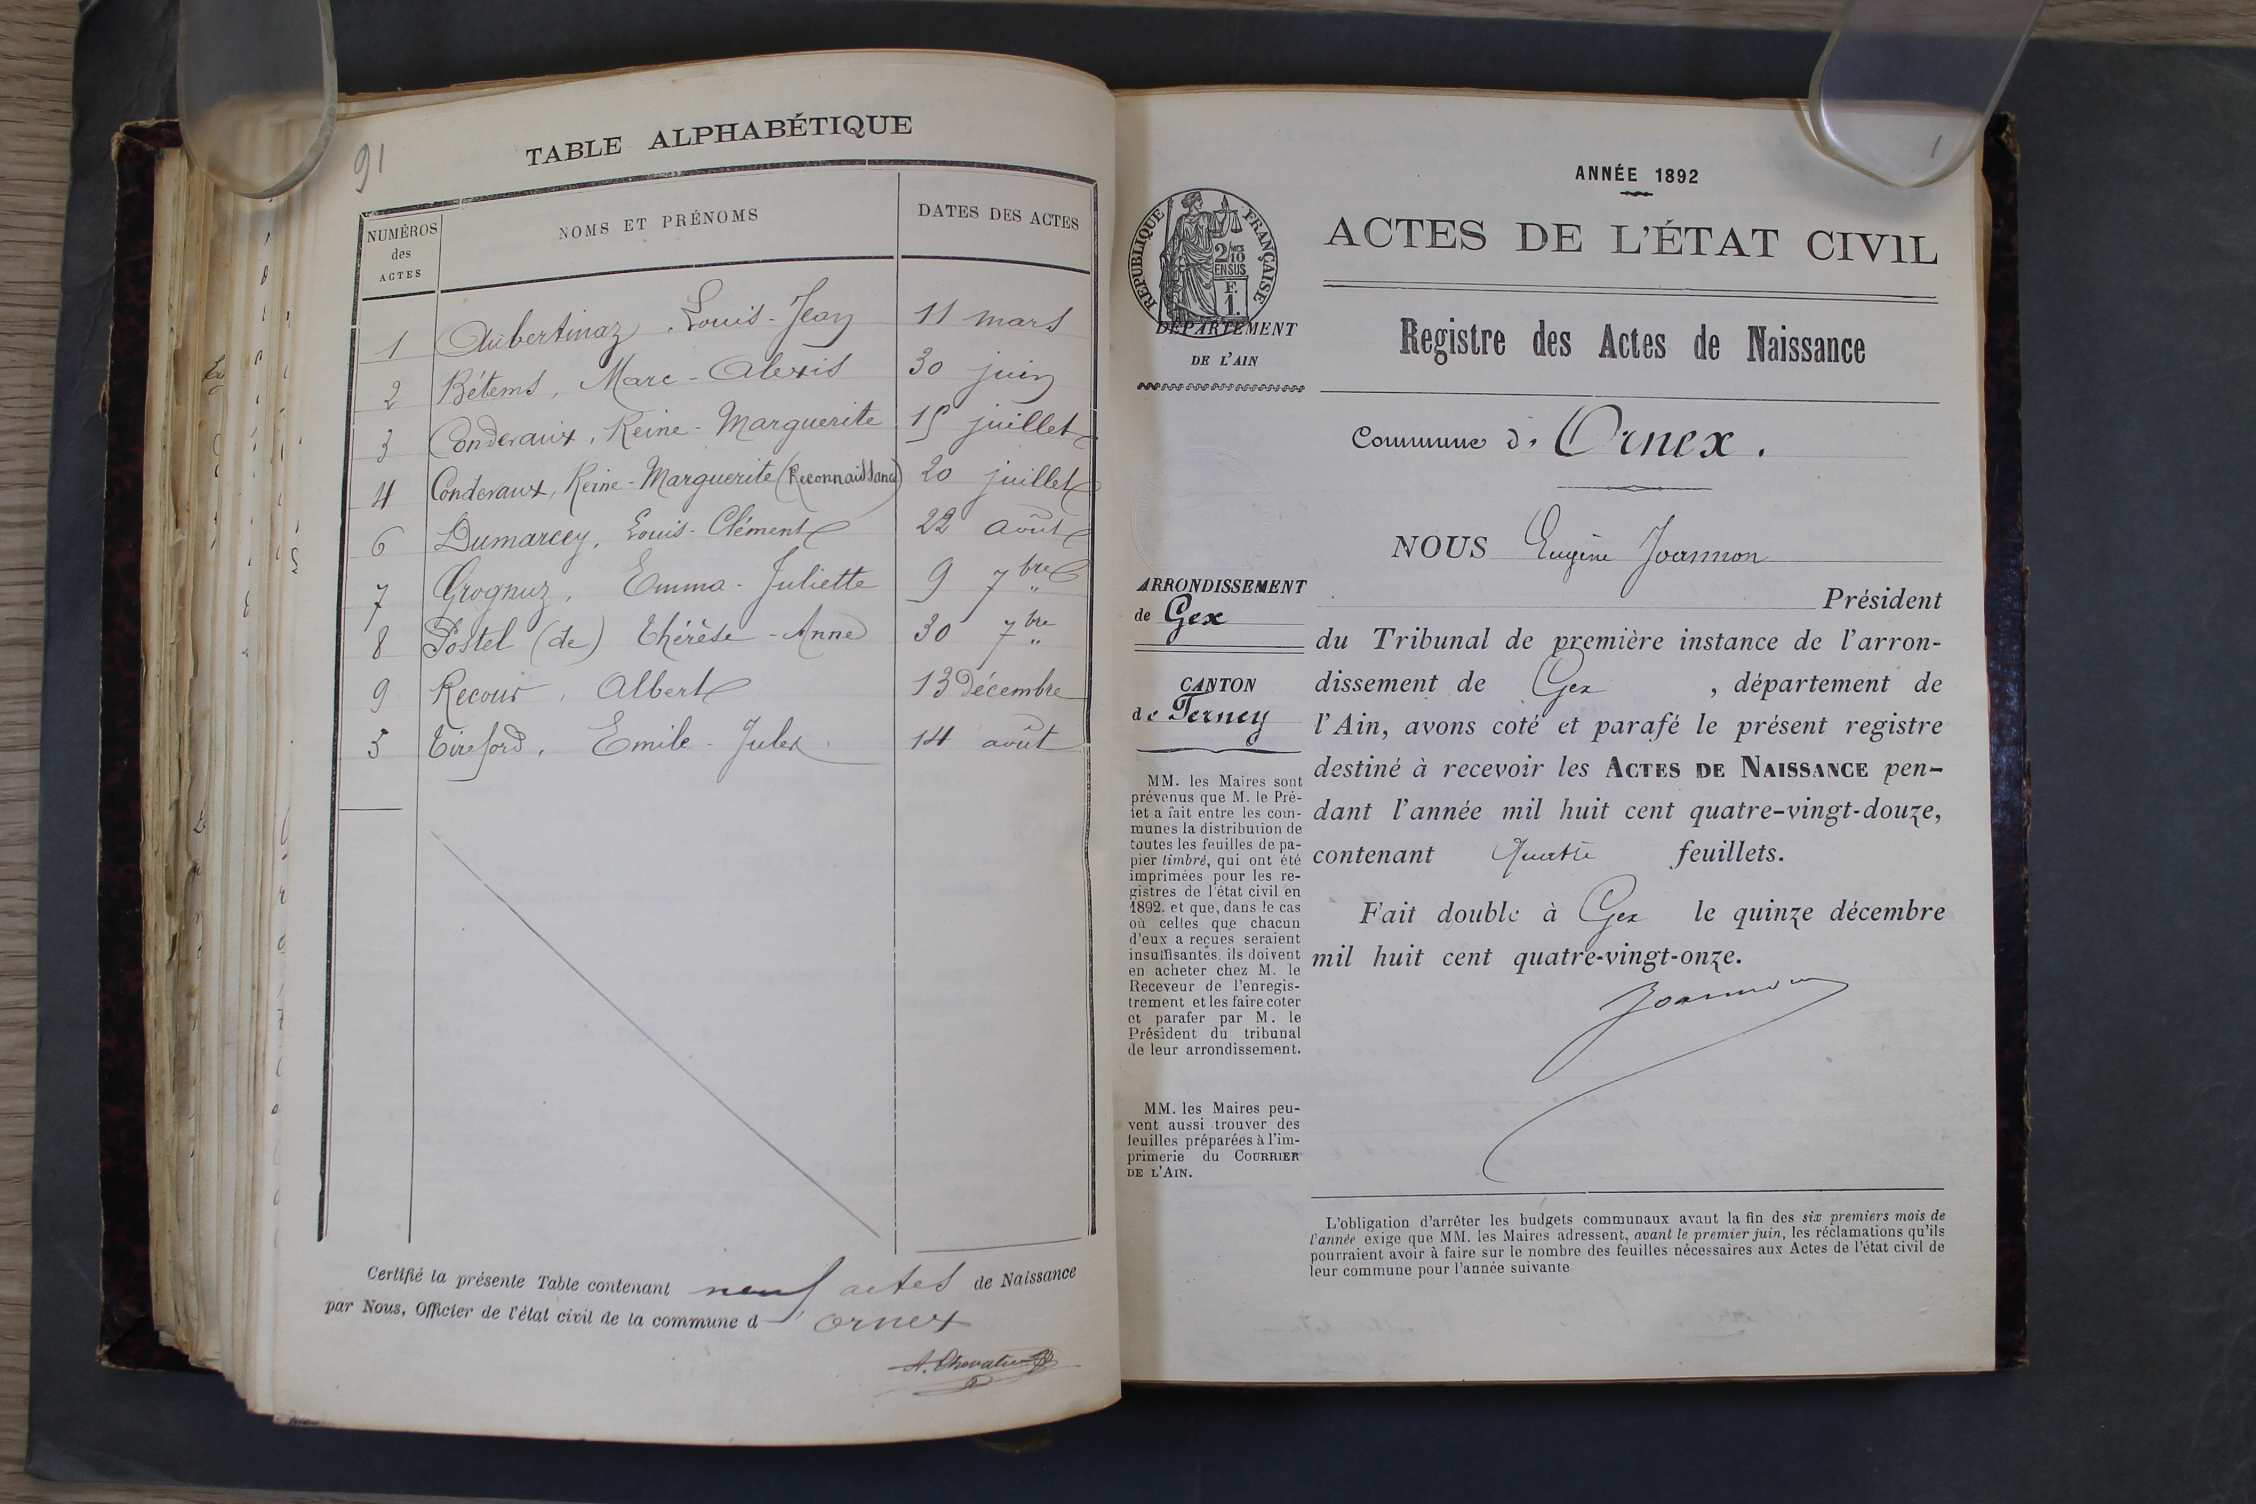 91
TABLE ALPHABÉTIQUE
NUMÉROS des ACTES
NOMS ET PRÉNOMS
DATES DES ACTES
1 Aubertinaz, Louis-Jean 11 mars
2 Bétems, Marc-Alexis 30 juin
3 Conderaux, Reine-Marguerite 15 juillet
4 Conderaux, Reine-Marguerite (Reconnaissance) 20 juillet
6 Dumarcey, Louis-Clément 22 août
7 Grognuz, Emma-Juliette 9 7bre
8 Postel (de) Thérèse-Anne 30 7bre
9 Recour, Albert 13 Décembre
5 Tireford, Emile-Jules 14 août
Certifié la présente Table contenant neuf actes de Naissance
par Nous, Officier de l'état civil de la commune d'Ornex
A. Chevalier
1
ANNÉE 1892
ACTES DE L'ÉTAT CIVIL
RÉPUBLIQUE FRANÇAISE
2/10 EN SUS
F. 1.
DÉPARTEMENT
DE L'AIN
Registre des Actes de Naissance
Commune d'Ornex.
ARRONDISSEMENT
de Gex
CANTON
de Ferney
MM. les Maires sont
prévenus que M. le Pré-
fet a fait entre les com-
munes la distribution de
toutes les feuilles de pa-
pier timbré, qui ont été
imprimées pour les re-
gistres de l'état civil en
1892, et que, dans le cas
où celles que chacun
d'eux a reçues seraient
insuffisantes, ils doivent
en acheter chez M. le
Receveur de l'enregis-
trement et les faire coter
et parafer par M. le
Président du tribunal
de leur arrondissement.
MM. les Maires peu-
vent aussi trouver des
feuilles préparées à l'im-
primerie du COURRIER
DE L'AIN.
NOUS Eugène Joannon
Président
du Tribunal de première instance de l'arron-
dissement de Gex, département de
l'Ain, avons coté et parafé le présent registre
destiné à recevoir les ACTES DE NAISSANCE pen-
dant l'année mil huit cent quatre-vingt-douze,
contenant Quatre feuillets.
Fait double à Gex le quinze décembre
mil huit cent quatre-vingt-onze.
Joannon
L'obligation d'arrêter les budgets communaux avant la fin des six premiers mois de
l'année exige que MM. les Maires adressent, avant le premier juin, les réclamations qu'ils
pourraient avoir à faire sur le nombre des feuilles nécessaires aux Actes de l'état civil de
leur commune pour l'année suivante